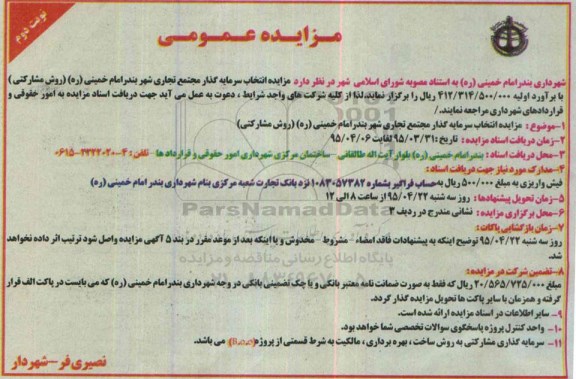 نوبت دوم
مزایده عمومی
شهرداری بندرامام خمینی (ره) به استناد مصوبه شورای اسلامی شهر در نظر دارد مزایده انتخاب سرمایه گذار مجتمع تجاری شهر بندرامام خمینی (ره) (روش مشارکتی)
با برآورد اولیه ۴۱۲/۳۱۴/۵۰۰/۰۰۰ ریال را برگزار نماید.لذا از کلیه شرکت های واجد شرایط ، دعوت به عمل می آید جهت دریافت اسناد مزایده به امور حقوقی و
قراردادهای شهرداری مراجعه نمایند./
۱-موضوع : مزایده انتخاب سرمایه گذار مجتمع تجاری شهر بندرامام خمینی (ره) (روش مشارکتی)
۲-زمان دریافت اسناد مزایده : تاریخ ۹۵/۰۳/۳۱ لغایت ۹۵/۰۴/۰۶
۳-محل دریافت اسناد: بندرامام خمینی (ره) بلوار آیت اله طالقانی - ساختمان مرکزی شهرداری امور حقوقی و قرارداد ها تلفن: ۴-۰۶۱۵-۲۲۲۲۰۲۰
۴-مدارک مورد نیاز جهت دریافت اسناد:
فیش واریزی به مبلغ ۵۰۰/۰۰۰ ریال به حساب فراگیر بشماره ۱۰۸۳۰۵۷۳۸۲ نزد بانک تجارت شعبه مرکزی بنام شهرداری بندر امام خمینی (ره)
۵-زمان تحویل پیشنهادها: روز سه شنبه ۹۵/۰۴/۲۲ از ساعت ۸ الی ۱۲
۶-محل برگزاری مزایده : نشانی مندرج در ردیف ۳
۷-زمان بازگشایی پاکات:
روز سه شنبه ۹۵/۰۴/۲۲ توضیح اینکه به پیشنهادات فاقد امضاء ، مشروط ، مخدوش و یا اینکه بعد از موعد مقرر در بند ۵ آگهی مزایده واصل شود ترتیب اثر داده نخواهد
شد.
۸-تضمین شرکت در مزایده:
مبلغ ۲۰/۵۶۵/۷۲۵/۰۰۰ ریال که فقط به صورت ضمانت نامه معتبر بانکی و یا چک تضمینی بانکی در وجه شهرداری بندرامام خمینی (ره) که می بایست در پاکت الف قرار
گرفته و همزمان با سایر پاکت ها تحویل مزایده گذار گردد.
۹- سایر اطلاعات در اسناد مزایده ارائه شده است.
۱۰- واحد کنترل پروژه پاسخگوی سوالات تخصصی شما خواهد بود.
۱۱- سرمایه گذاری مشارکتی به روش ساخت ، بهره برداری ، مالکیت به شرط قسمتی از پروژه می باشد.
نصیری فر-شهردار
ParsNamadData
پایگاه اطلاع رسانی مناقصه و مزایده